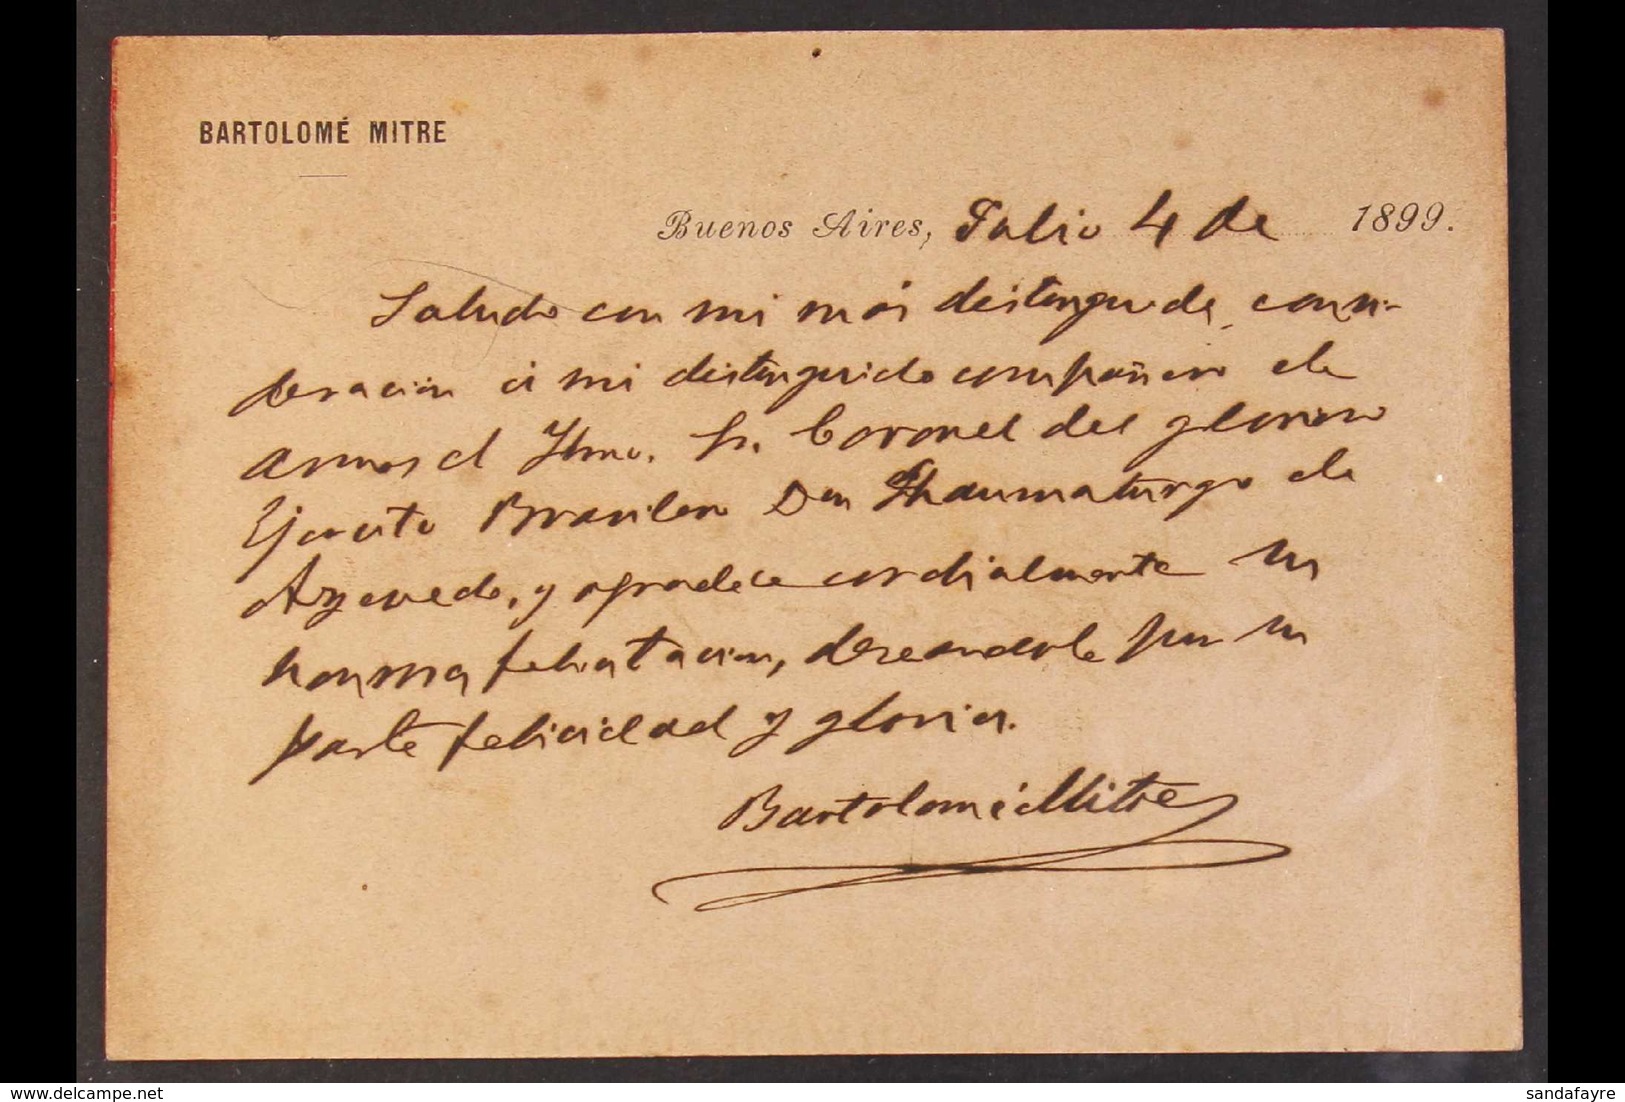 BARTOLOMÉ MITRE
Buenos Aires, Julio 4 de 1899.
Saludo con mi más distinguida consi-
deración á mi distinguido compañero de
armas el Ilmo. Sr. Coronel del glorioso
Ejercito Brasilero Don Thaumaturgo de
Azevedo, y agradece cordialmente su
honrosa felicitacion, deseandole por su
parte felicidad y gloria.
Bartolomé Mitre
sandafayre